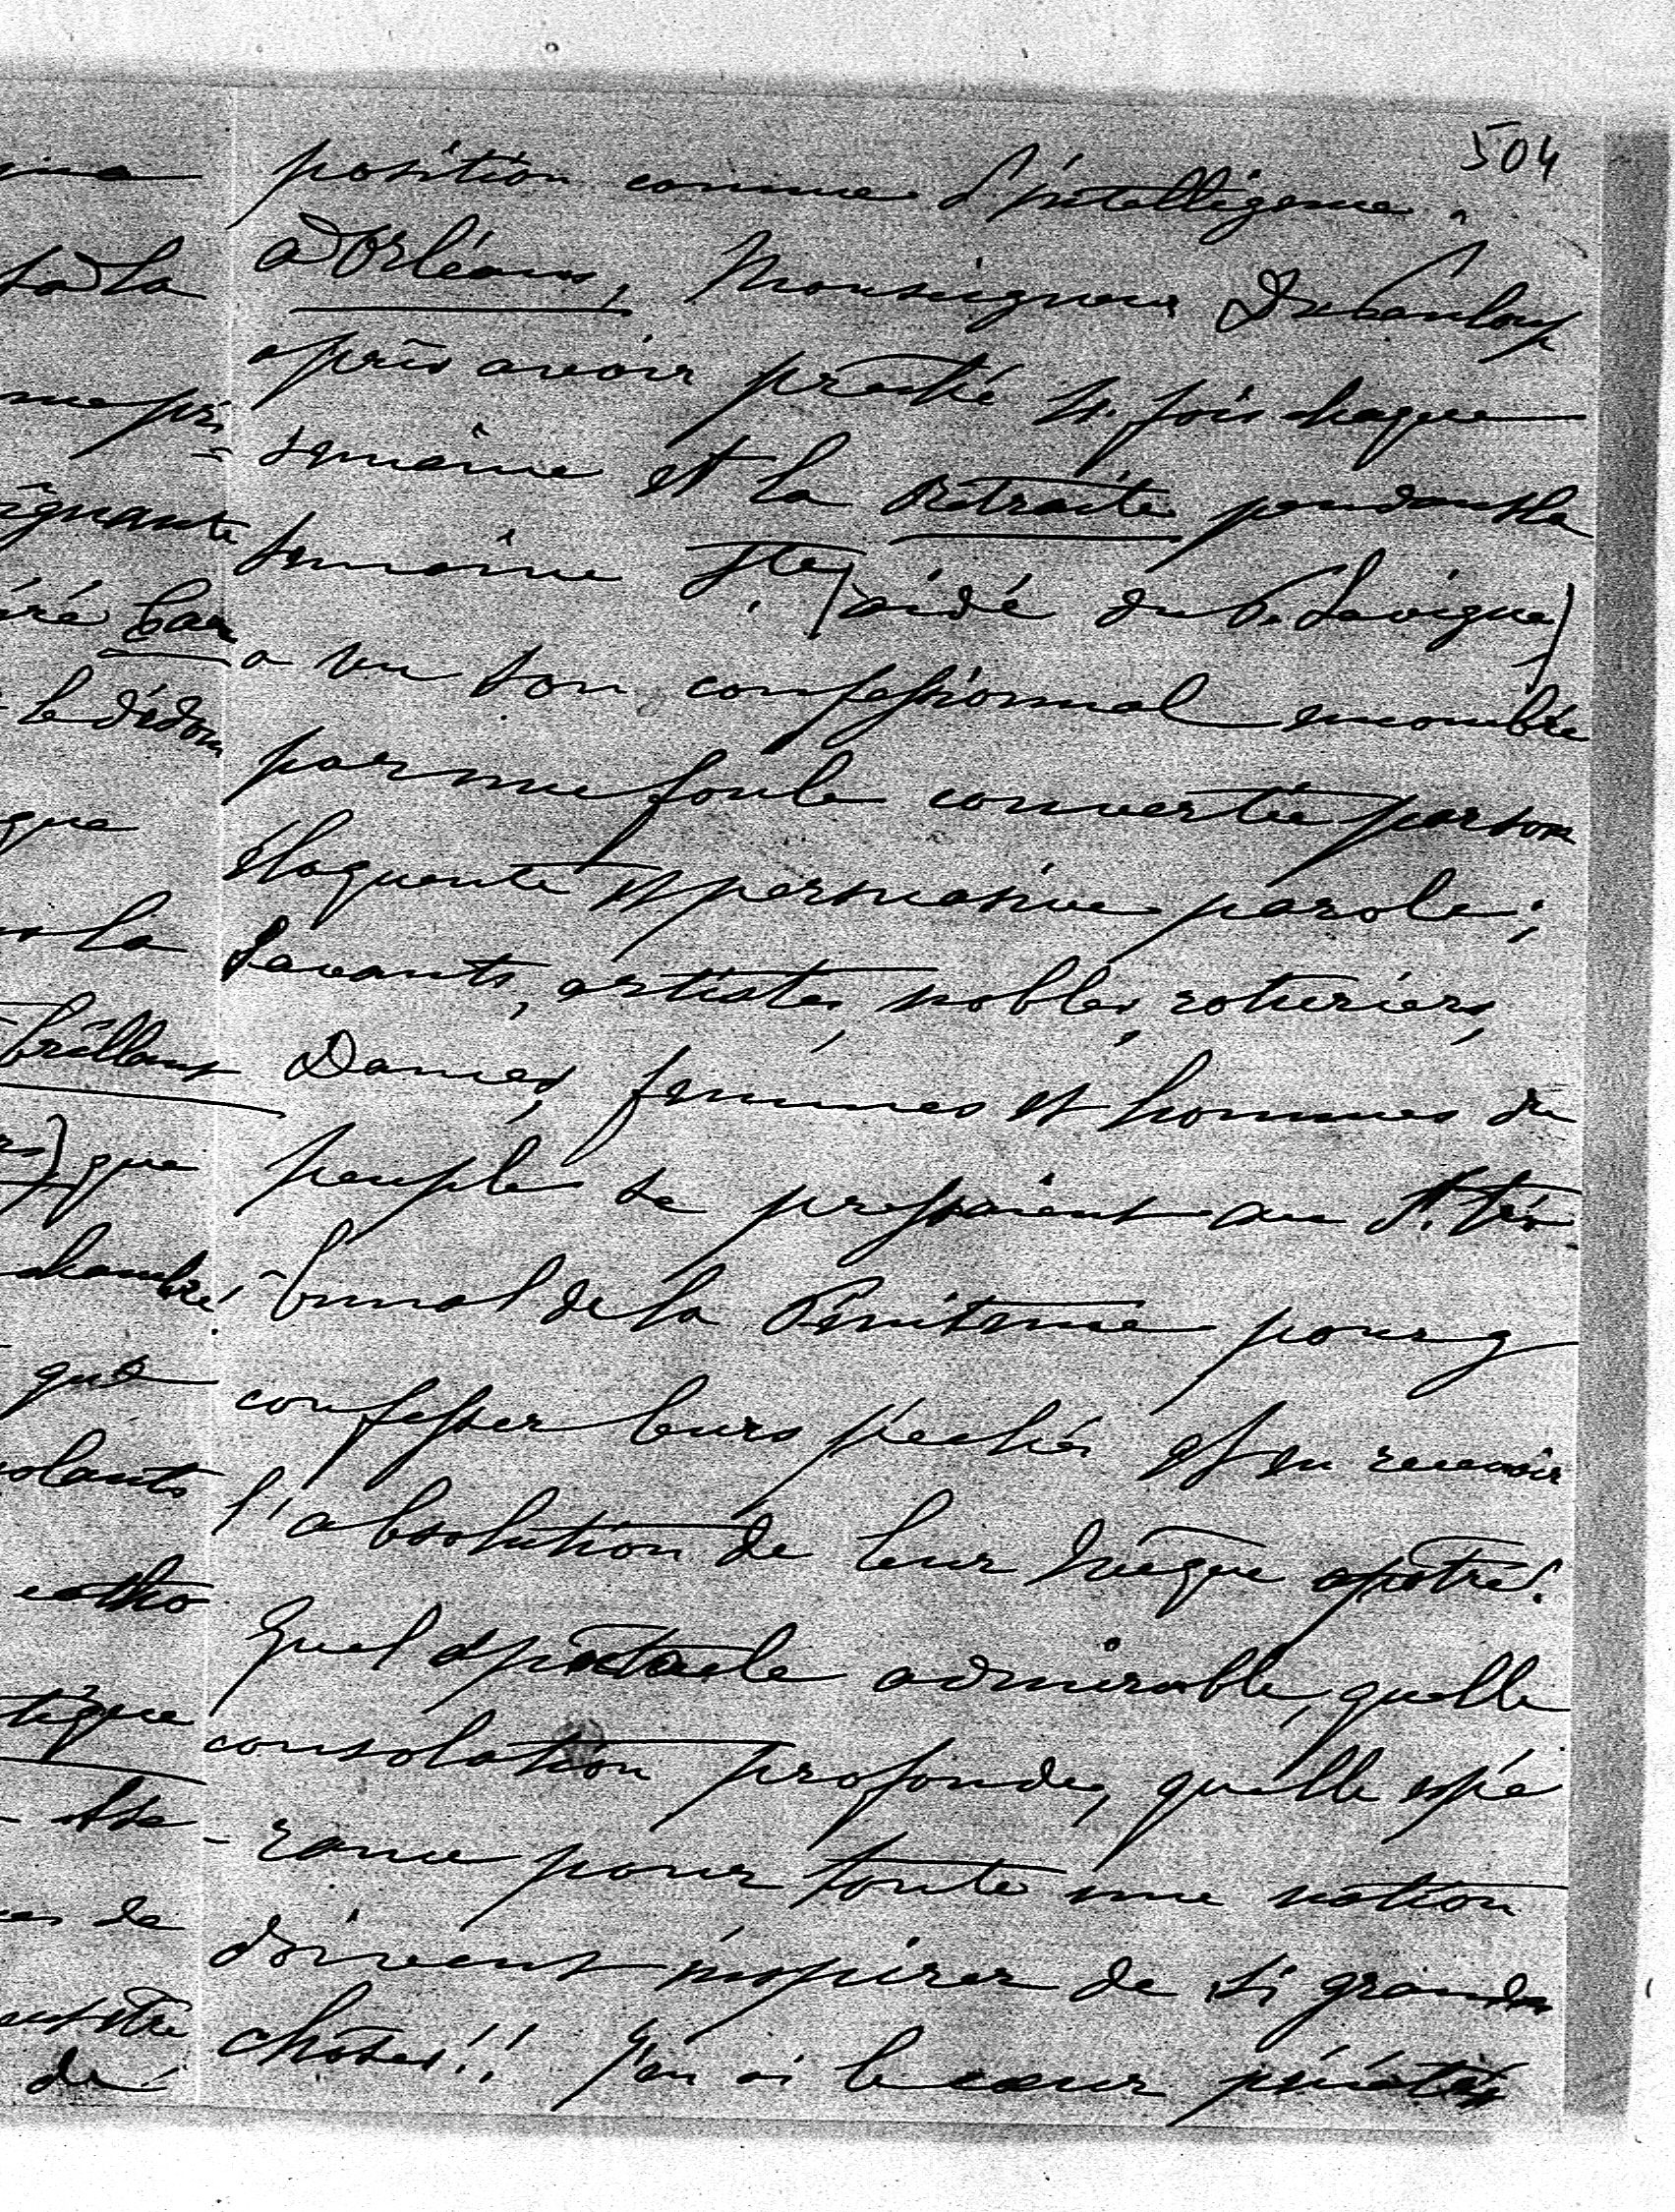 504
position comme d'intelligence.
à Orléans, Monseigneur Dupanloup
après avoir prêché 4 fois chaque
semaine et la Retraite pendant la
semaine Ste. (aidé du P. Lavigne)
a vu son confessionnal encombré
par une foule convertie par son
éloquente et persuasive parole;
Savants, artistes, nobles, roturiers,
Dames, femmes et hommes du
peuple se pressaient au St. tri-
bunal de la Pénitence pour y
confesser leurs péchés et en recevoir
l'absolution de leur Evêque apôtre!
Quel spectacle admirable, quelle
consolation profonde, quelle espé
-rance pour toute une nation
doivent inspirer de si grandes
choses!! J'en ai le cœur pénétré
que
la
brillants
que
que
de
de